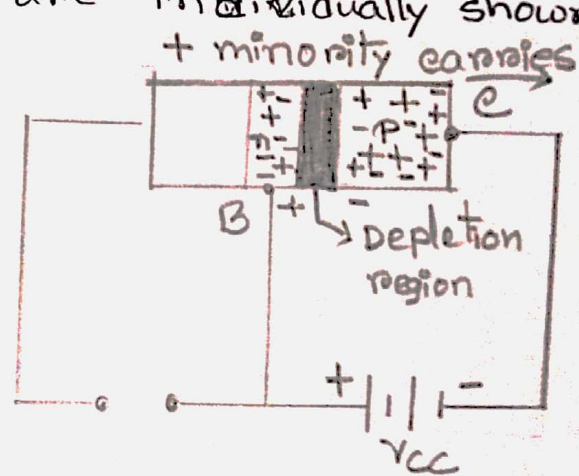 are individually shown
+ minority carries
C
+ -
+
n -
- +
+ + -
- P - +
+ + + -
B
+ -
Depletion
region
+ -
VCC